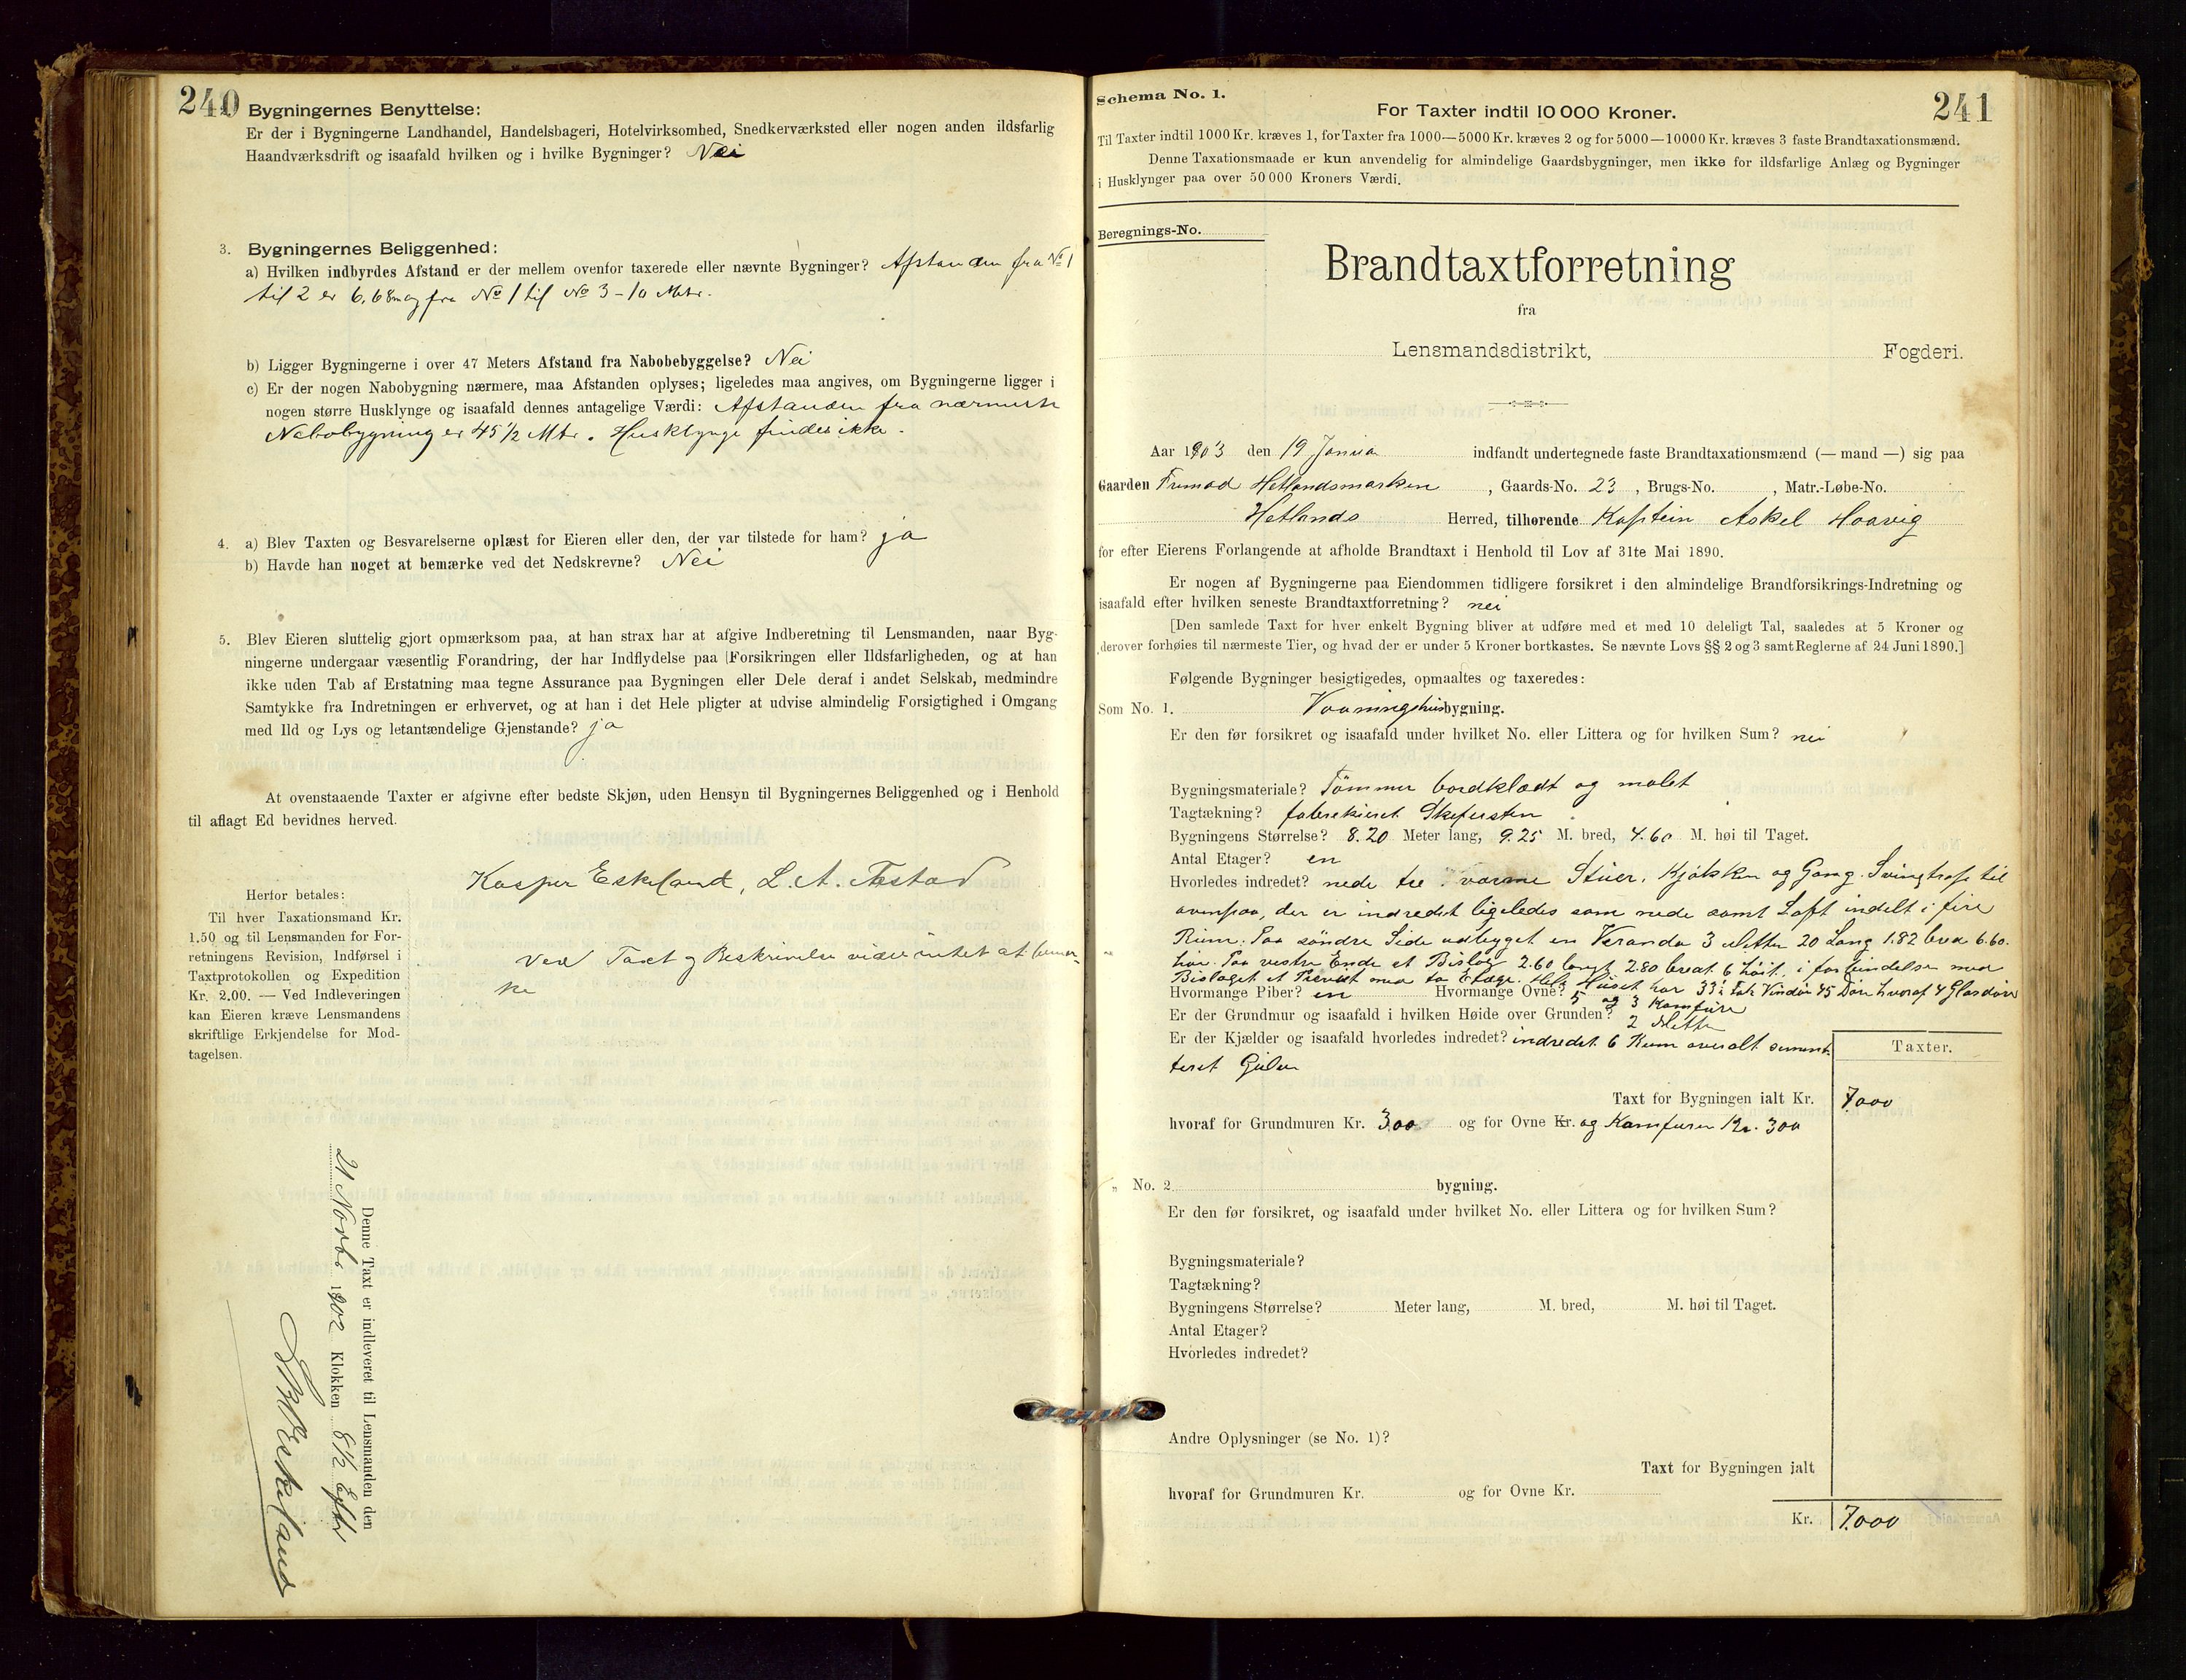 240
Bygningernes Benyttelse:
Er der i Bygningerne Landhandel, Handelsbageri, Hotelvirksomhed, Snedkerværksted eller nogen anden ildsfarlig
Haandværksdrift og isaafald hvilken og i hvilke Bygninger? Nei
3. Bygningernes Beliggenhed:
a) Hvilken indbyrdes Afstand er der mellem ovenfor taxerede eller nævnte Bygninger? Afstanden fra No 1
til 2 er 6,68m og fra No 1 til No 3 - 10 Metr.
b) Ligger Bygningerne i over 47 Meters Afstand fra Nabobebyggelse? Nei
c) Er der nogen Nabobygning nærmere, maa Afstanden oplyses; ligeledes maa angives, om Bygningerne ligger i
nogen større Husklynge og isaafald dennes antagelige Værdi: Afstanden fra nærmeste
Nabobygning er 45 1/2 Mtr. Husklynge findes ikke.
4. a) Blev Taxten og Besvarelserne oplæst for Eieren eller den, der var tilstede for ham? ja
b) Havde han noget at bemærke ved det Nedskrevne? Nei
5. Blev Eieren sluttelig gjort opmærksom paa, at han strax har at afgive Indberetning til Lensmanden, naar Byg-
ningerne undergaar væsentlig Forandring, der har Indflydelse paa Forsikringen eller Ildsfarligheden, og at han
ikke uden Tab af Erstatning maa tegne Assurance paa Bygningen eller Dele deraf i andet Selskab, medmindre
Samtykke fra Indretningen er erhvervet, og at han i det Hele pligter at udvise almindelig Forsigtighed i Omgang
med Ild og Lys og letantændelige Gjenstande? ja
At ovenstaaende Taxter er afgivne efter bedste Skjøn, uden Hensyn til Bygningernes Beliggenhed og i Henhold
til aflagt Ed bevidnes herved.
Kasper Eskeland, L. A. Tastad
Herfor betales:
Til hver Taxationsmand Kr.
1.50 og til Lensmanden for For-
retningens Revision, Indførsel i
Taxtprotokollen og Expedition
Kr. 2.00. — Ved Indleveringen
kan Eieren kræve Lensmandens
skriftlige Erkjendelse for Mod-
tagelsen.
Ved Taxt og Beskrivelse vides intet at bemær-
ke
Denne Taxt er indleveret til Lensmanden den
21 Novbr 1902 Klokken 8 1/2 Eftr
Eskeland
Schema No. 1.
For Taxter indtil 10 000 Kroner.
241
Til Taxter indtil 1000 Kr. kræves 1, for Taxter fra 1000—5000 Kr. kræves 2 og for 5000—10000 Kr. kræves 3 faste Brandtaxationsmænd.
Denne Taxationsmaade er kun anvendelig for almindelige Gaardsbygninger, men ikke for ildsfarlige Anlæg og Bygninger
i Husklynger paa over 50 000 Kroners Værdi.
Beregnings-No.
Brandtaxtforretning
fra
Lensmandsdistrikt, Fogderi.
Aar 1903 den 19 Januar indfandt undertegnede faste Brandtaxationsmænd (— mand —) sig paa
Gaarden Fremad Hetlandsmarken, Gaards-No. 23, Brugs-No. , Matr.-Løbe-No.
Hetlands Herred, tilhørende Kaptein Askel Haavig
for efter Eierens Forlangende at afholde Brandtaxt i Henhold til Lov af 31te Mai 1890.
Er nogen af Bygningerne paa Eiendommen tidligere forsikret i den almindelige Brandforsikrings-Indretning og
isaafald efter hvilken seneste Brandtaxtforretning? nei
[Den samlede Taxt for hver enkelt Bygning bliver at udføre med et med 10 deleligt Tal, saaledes at 5 Kroner og
derover forhøies til nærmeste Tier, og hvad der er under 5 Kroner bortkastes. Se nævnte Lovs §§ 2 og 3 samt Reglerne af 24 Juni 1890.]
Følgende Bygninger besigtigedes, opmaaltes og taxeredes:
Som No. 1. Vaaningshusbygning.
Er den før forsikret og isaafald under hvilket No. eller Littera og for hvilken Sum? nei
Bygningsmateriale? Tömmer bordklædt og malet
Tagtækning? fabrekieret Skifersten
Bygningens Størrelse? 8.20 Meter lang, 9.25 M. bred, 4.60 M. høi til Taget.
Antal Etager? en
Hvorledes indredet? nede tre varme Stuer, Kjökken og Gang. Svingtrap til
ovenpaa, der er indredet ligeledes som nede samt Loft indelt i fire
Rum. Paa söndre Side udbygget en Veranda 3 Metter 20 Lang 1.82 bred 6.60.
höi. Paa vestre Ende et Bislag 2.60 langt 2.80 bredt 6 höit, i forbindelse med
Bislaget et Privat med to Etage. Hele Huset har 33 Fag Vindöer 45 Döre hvoraf 4 Glasdöre
Hvormange Piber? en Hvormange Ovne? 5 og 3 Komfüre
Er der Grundmur og isaafald i hvilken Høide over Grunden? 2 Metter
Er der Kjælder og isaafald hvorledes indredet? indredet 6 Rum overalt sement-
teret Gulve
Taxter.
Taxt for Bygningen ialt Kr. 7.000
hvoraf for Grundmuren Kr. 300 og for Ovne Kr. og Komfurer Kr. 300
„ No. 2 bygning.
Er den før forsikret, og isaafald under hvilket No. eller Littera og for hvilken Sum?
Bygningsmateriale?
Tagtækning?
Bygningens Størrelse? Meter lang, M. bred, M. høi til Taget.
Antal Etager?
Hvorledes indredet?
Andre Oplysninger (se No. 1)?
Taxt for Bygningen ialt
hvoraf for Grundmuren Kr. og for Ovne Kr.
Kr. 7.000